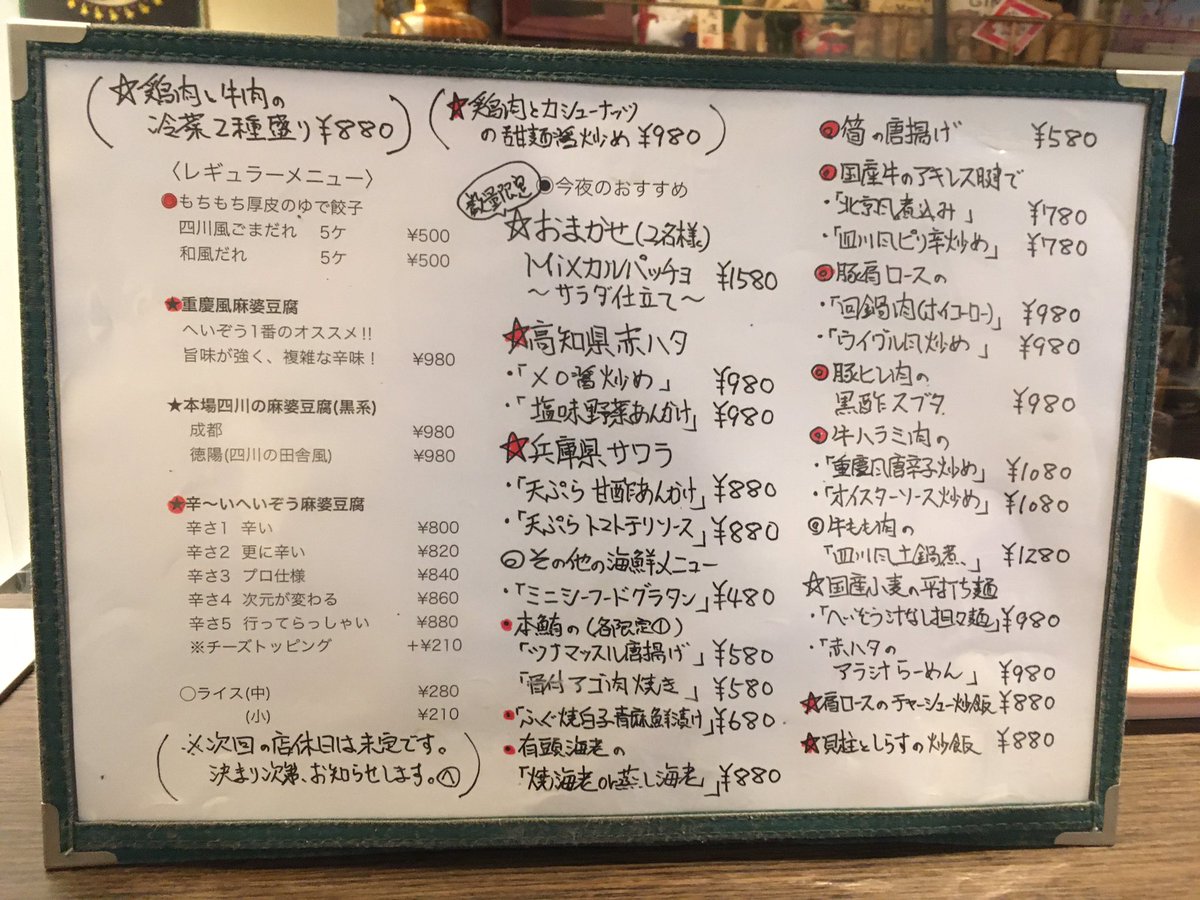 (☆鶏肉と牛肉の
冷菜2種盛り¥880)
〈レギュラーメニュー〉
●もちもち厚皮のゆで餃子
四川風ごまだれ 5ケ ¥500
和風だれ 5ケ ¥500
★重慶風麻婆豆腐
へいぞう1番のオススメ!!
旨味が強く、複雑な辛味！ ¥980
★本場四川の麻婆豆腐(黒系)
成都 ¥980
徳陽(四川の田舎風) ¥980
★辛～いへいぞう麻婆豆腐
辛さ1 辛い ¥800
辛さ2 更に辛い ¥820
辛さ3 プロ仕様 ¥840
辛さ4 次元が変わる ¥860
辛さ5 行ってらっしゃい ¥880
※チーズトッピング +¥210
○ライス(中) ¥280
(小) ¥210
(※次回の店休日は未定です。
決まり次第、お知らせします。)
(★鶏肉とカシューナッツ
の甜麺醤炒め ¥980)
数量限定
●今夜のおすすめ
☆おまかせ(2名様)
MIXカルパッチョ ¥1580
～サラダ仕立て～
★高知県赤ハタ
・「XO醤炒め」 ¥980
・「塩味野菜あんかけ」 ¥980
★兵庫県サワラ
・「天ぷら甘酢あんかけ」 ¥880
・「天ぷらトマトチリソース」 ¥880
◎その他の海鮮メニュー
・「ミニシーフードグラタン」 ¥480
・本鮪の(各限定①)
「ツナマッスル唐揚げ」 ¥580
「骨付アゴ肉焼き」 ¥580
・「ふぐ焼白子青麻鮮漬け」 ¥680
・有頭海老の
「焼海老or蒸し海老」 ¥880
◉筍の唐揚げ ¥580
◉国産牛のアキレス腱で
・「北京風煮込み」 ¥780
・「四川風ピリ辛炒め」 ¥780
◉豚肩ロースの
・「回鍋肉(ホイコーロー)」 ¥980
・「ウイグル風炒め」 ¥980
◉豚ヒレ肉の
黒酢スブタ ¥980
◉牛ハラミ肉の
・「重慶風唐辛子炒め」 ¥1080
・「オイスターソース炒め」 ¥1080
◎牛もも肉の
「四川風土鍋煮」 ¥1280
☆国産小麦の平打ち麺
・「へいぞう汁なし担々麺」 ¥980
・「赤ハタの
アラ汁らーめん」 ¥980
★肩ロースのチャーシュー炒飯 ¥880
★貝柱としらすの炒飯 ¥880